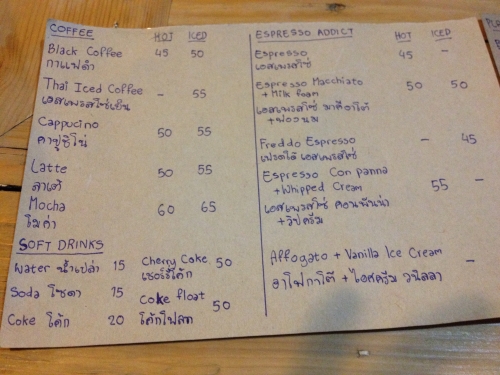 COFFEE HOT ICED
Black Coffee 45 50
กาแฟดำ
Thai Iced Coffee - 55
เอสเพรสโซ่เย็น
Cappucino 50 55
คาปูชิโน่
Latte 50 55
ลาเต้
Mocha 60 65
มอค่า
SOFT DRINKS
Water น้ำเปล่า 15
Soda โซดา 15
Coke โค้ก 20
Cherry Coke 50
เชอร์รี่โค้ก
Coke float 50
โค้กโฟลต
ESPRESSO ADDICT HOT ICED
Espresso 45 -
เอสเพรสโซ่
Espresso Macchiato 50 50
+ Milk foam
เอสเพรสโซ่ มาคิอาโต้
+ ฟองนม
Freddo Espresso - 45
เฟรดโด้ เอสเพรสโซ่
Espresso Con panna 55 -
+ Whipped Cream
เอสเพรสโซ่ คอนพันน่า
+ วิปครีม
Affogato + Vanilla Ice Cream -
อาโฟกาโต้ + ไอศครีม วนิลลา